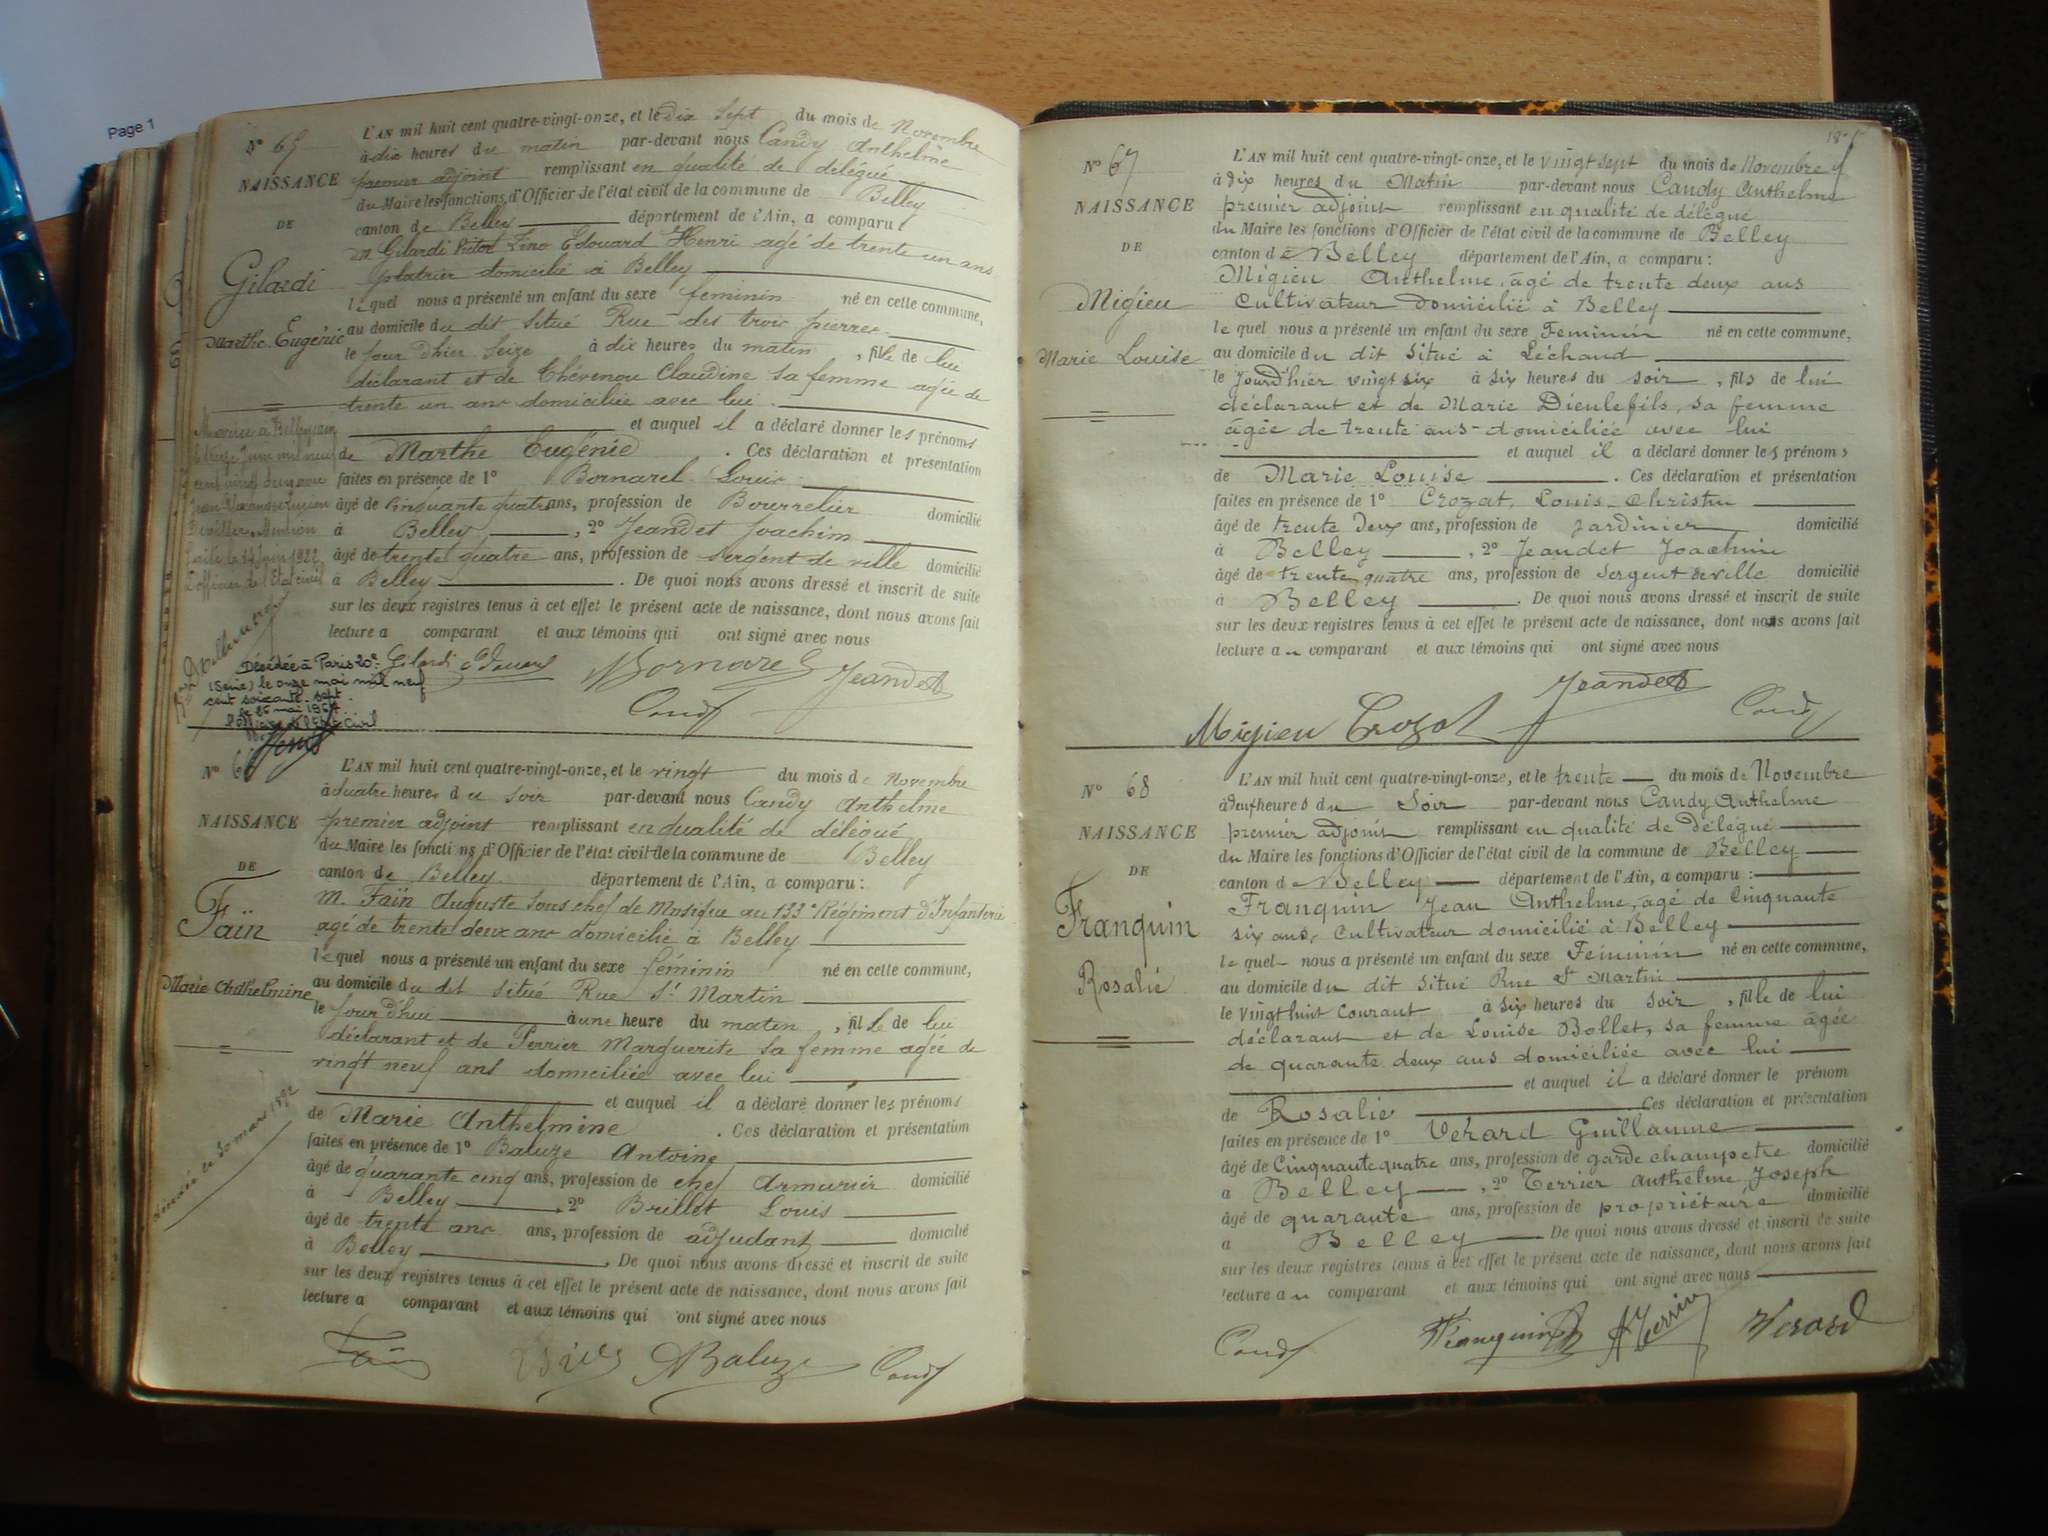 Page 1
N° 65
NAISSANCE
DE
Gilardi
Marthe Eugénie
L'AN mil huit cent quatre-vingt-onze, et le dix sept du mois de Novembre
à dix heures du matin par-devant nous Candy Anthelme
premier adjoint remplissant en qualité de délégué
du Maire les fonctions d'Officier de l'état civil de la commune de Belley
canton de Belley département de l'Ain, a comparu :
M Gilardi Victor Lino Edouard Henri agé de trente un ans
platrier domicilié à Belley
lequel nous a présenté un enfant du sexe feminin né en cette commune,
au domicile du dit situé Rue des trois pierres
le jour d'hier seize à dix heures du matin, fille de lui
déclarant et de Thévenou Claudine sa femme agée de
trente un ans domiciliée avec lui.
et auquel il a déclaré donner les prénoms
de Marthe Eugénie. Ces déclaration et présentation
faites en présence de 1° Bornarel Louis
âgé de cinquante quatre ans, profession de Bourrelier domicilié
à Belley, 2° Jeandet Joachim
âgé de trente quatre ans, profession de sergent de ville domicilié
à Belley. De quoi nous avons dressé et inscrit de suite
sur les deux registres tenus à cet effet le présent acte de naissance, dont nous avons fait
lecture a comparant et aux témoins qui ont signé avec nous
Mariée à Belley
faite le 14 Juin 1922
L'officier de l'Etat civil
Décédée à Paris 20e
(Seine) le onze mai mil neuf
cent soixante-sept
Gilardi
Bornarel
Jeandet
Candy
N° 66
NAISSANCE
DE
Faïn
Marie Anthelmine
L'AN mil huit cent quatre-vingt-onze, et le vingt du mois de Novembre
à quatre heures du soir par-devant nous Candy Anthelme
premier adjoint remplissant en qualité de délégué
du Maire les fonctions d'Officier de l'état civil de la commune de Belley
canton de Belley département de l'Ain, a comparu :
M. Faïn Auguste Sous chef de Musique au 133e Régiment d'Infanterie
agé de trente deux ans domicilié à Belley
lequel nous a présenté un enfant du sexe féminin né en cette commune,
au domicile du dit situé Rue St Martin
le jour d'hui à une heure du matin, fille de lui
déclarant et de Perrier Marguerite sa femme agée de
vingt neuf ans domiciliée avec lui
et auquel il a déclaré donner les prénoms
de Marie Anthelmine. Ces déclaration et présentation
faites en présence de 1° Baluze Antoine
âgé de quarante cinq ans, profession de chef Armurier domicilié
à Belley 2° Brillet Louis
âgé de trente ans ans, profession de adjudant domicilié
à Belley. De quoi nous avons dressé et inscrit de suite
sur les deux registres tenus à cet effet le présent acte de naissance, dont nous avons fait
lecture a comparant et aux témoins qui ont signé avec nous
30 mars 1892
Faïn
Baluze
Candy
N° 67
NAISSANCE
DE
Migieu
Marie Louise
L'AN mil huit cent quatre-vingt-onze, et le vingt sept du mois de Novembre
à dix heures du Matin par-devant nous Candy Anthelme
premier adjoint remplissant en qualité de délégué
du Maire les fonctions d'Officier de l'état civil de la commune de Belley
canton de Belley département de l'Ain, a comparu :
Migieu Anthelme, âgé de trente deux ans
Cultivateur domicilié à Belley
lequel nous a présenté un enfant du sexe Feminin né en cette commune,
au domicile du dit situé à Léchaud
le jour d'hier vingt six à six heures du soir, fils de lui
déclarant et de Marie Dieulefils, sa femme
âgée de trente ans domiciliée avec lui
et auquel il a déclaré donner les prénoms
de Marie Louise. Ces déclaration et présentation
faites en présence de 1° Crozat, Louis, Christin
âgé de trente deux ans, profession de jardinier domicilié
à Belley, 2° Jeandet Joachim
âgé de trente quatre ans, profession de Sergent de ville domicilié
à Belley. De quoi nous avons dressé et inscrit de suite
sur les deux registres tenus à cet effet le présent acte de naissance, dont nous avons fait
lecture au comparant et aux témoins qui ont signé avec nous
Jeandet
Migieu Crozat
Candy
N° 68
NAISSANCE
DE
Franquin
Rosalie
L'AN mil huit cent quatre-vingt-onze, et le trente du mois de Novembre
à neuf heures du Soir par-devant nous Candy Anthelme
premier adjoint remplissant en qualité de Délégué
du Maire les fonctions d'Officier de l'état civil de la commune de Belley
canton de Belley département de l'Ain, a comparu :
Franquin Jean Anthelme, agé de Cinquante
six ans, Cultivateur domicilié à Belley
lequel nous a présenté un enfant du sexe Feminin né en cette commune,
au domicile du dit situé Rue St Martin
le vingt huit courant à six heures du soir, fille de lui
déclarant et de Louise Bollet, sa femme âgée
de quarante deux ans domiciliée avec lui
et auquel il a déclaré donner le prénom
de Rosalie Ces déclaration et présentation
faites en présence de 1° Vérard Guillaume
âgé de Cinquante quatre ans, profession de garde champetre domicilié
a Belley, 2° Terrier Anthelme Joseph
âgé de quarante ans, profession de propriétaire domicilié
a Belley De quoi nous avons dressé et inscrit de suite
sur les deux registres tenus à cet effet le présent acte de naissance, dont nous avons fait
lecture au comparant et aux témoins qui ont signé avec nous
Candy
Franquin
Terrier
Verard